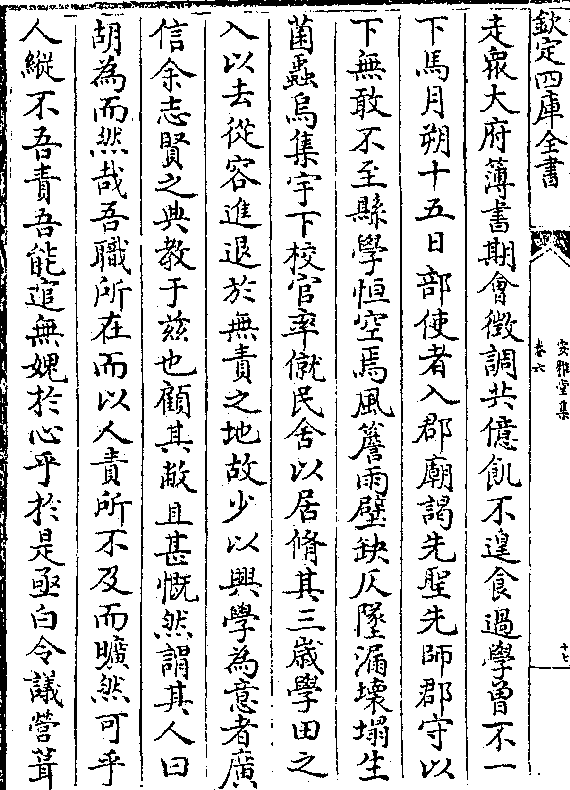 欽定四庫全書
安雅堂集
卷六
十七
走衆大府薄書期會徴調共億飢不遑食過學曽不一
下馬月朔十五日部使者入郡廟謁先聖先師郡守以
下無敢不至縣學恒空焉風簷雨壁缺仄墜漏壊塌生
菌蟲烏集宇下校官率僦民舍以居脩其三歳學田之
入以去從容進退於無責之地故少以興學為意者廣
信余志賢之典教于兹也顧其敝且甚慨然謂其人曰
胡為而然哉吾職所在而以人責所不及而曠然可乎
人縱不吾責吾能逭無媿於心乎於是亟白令議營葺